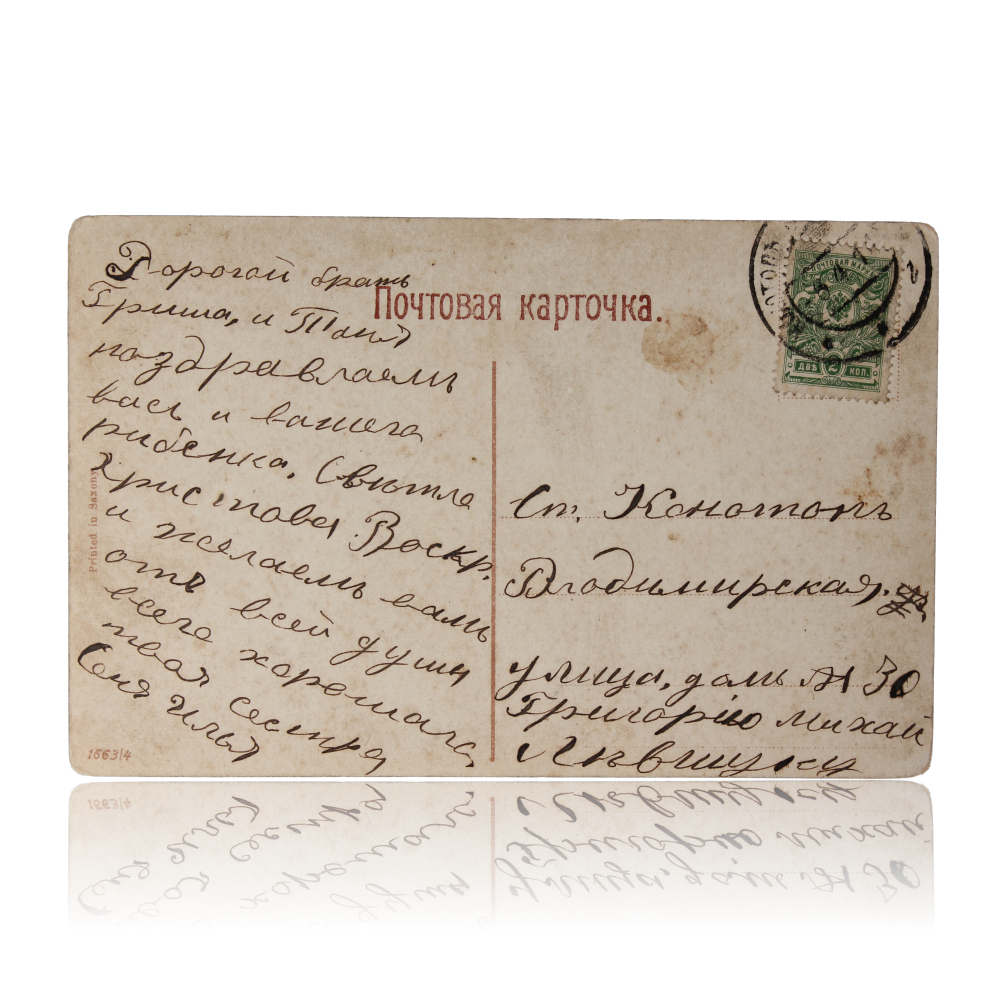 Дорогой братъ
Почтовая карточка.
Гриша, и Таня
поздравляемъ
васъ и вашего
рибенка, Свѣтла
Христова Воскр.
и желаемъ вамъ
отъ всей души
всего хорошаго
твоя сестра
Сеня Илья
Printed in Saxony
1663/4
ПОЧТОВАЯ МАРКА
ДВѢ 2 КОП.
Ст. Конотопъ
Владимирская.
улица, домъ № 30
Григорію михай
Лѣвшуку